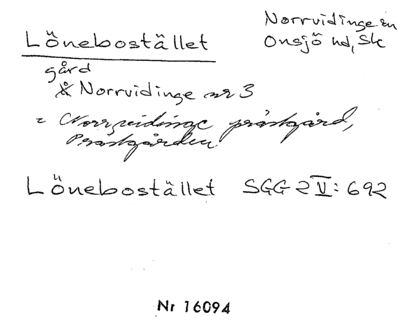 Lönebostället
Norrvidinge sn
Onsjö hd, Sk
gård
Å Norrvidinge nr 3
= Norrvidinge prästgård,
Prästgården.
Lönebostället SGG 2 V: 692
Nr 16094